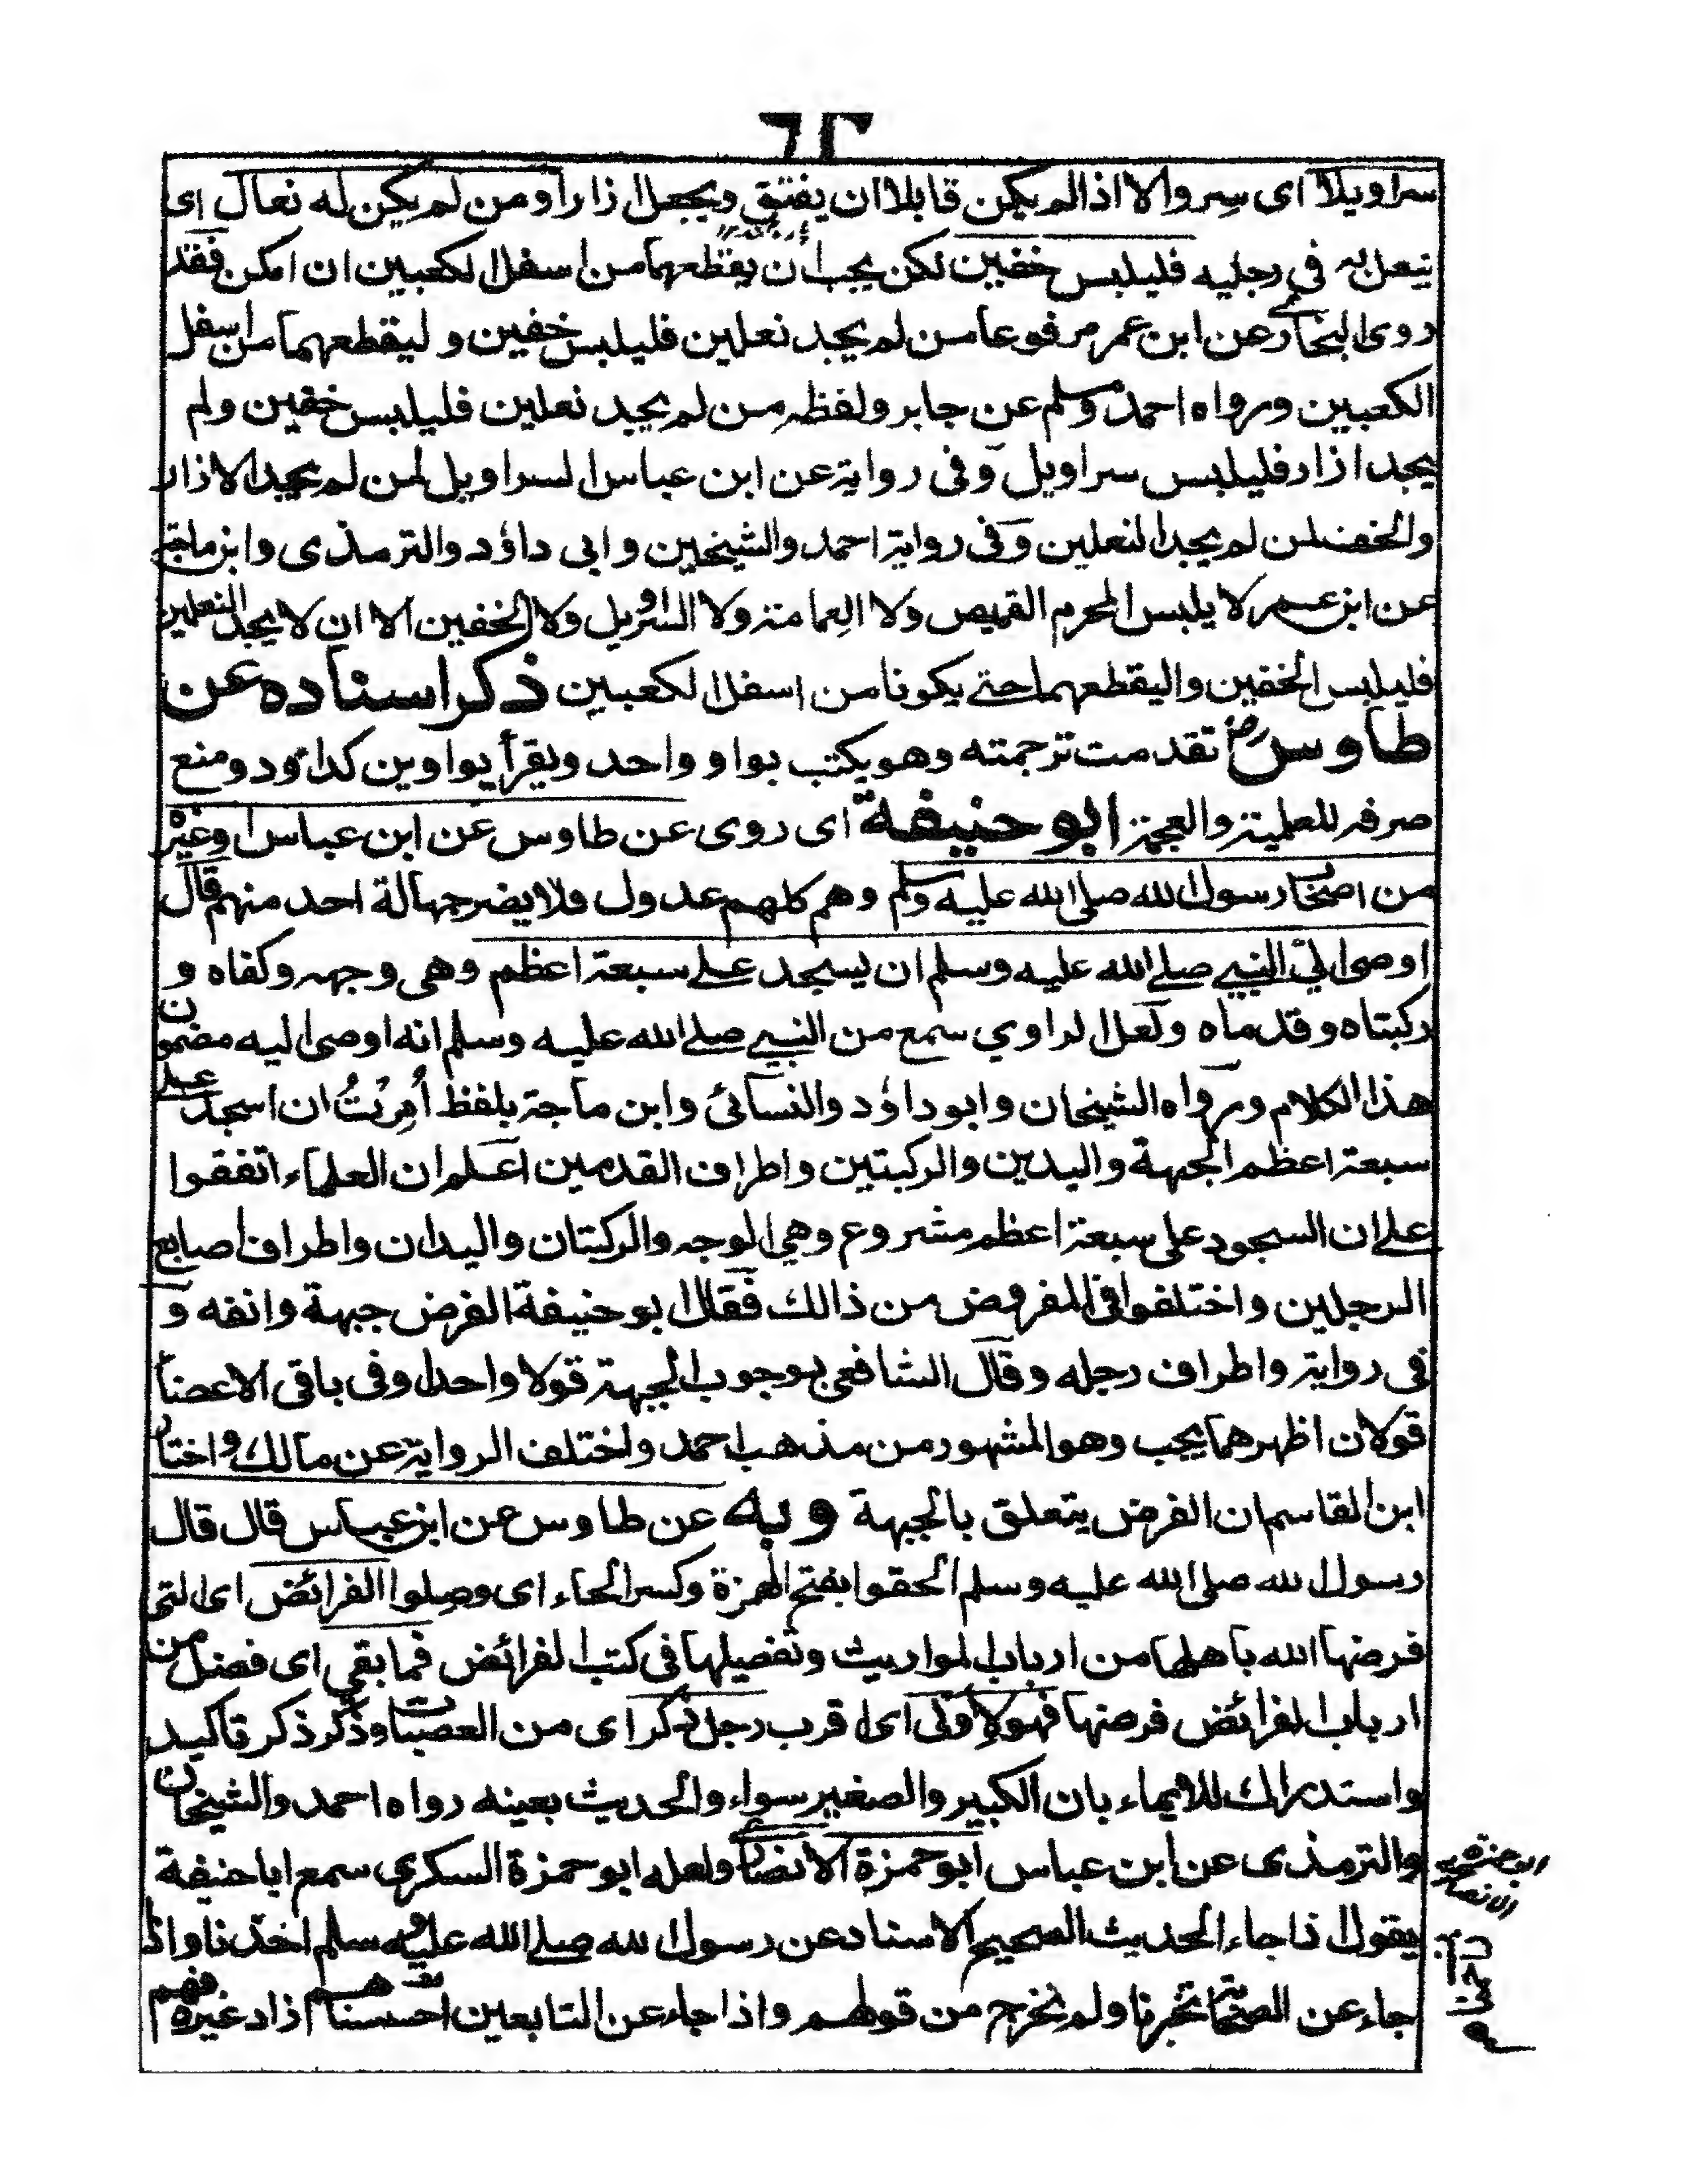 ٦٢
سراويلا اى سروالا اذا لم يكن قابلا ان يفتق ويجعل ازارا ومن لم يكن له نعال اى
يتنعل به فى رجليه فليلبس خفين لكن يجب ان يقطعهما من اسفل الكعبين ان امكن فقد
روى البخارى عن ابن عمر مرفوعا من لم يجد نعلين فليلبس خفين وليقطعهما من اسفل
الكعبين ورواه احمد ومسلم عن جابر ولفظه من لم يجد نعلين فليلبس خفين ولم
يجد ازار فليلبس سراويل وفى رواية عن ابن عباس السراويل لمن لم يجد الازار
والخف لمن لم يجد النعلين وفى رواية احمد والشيخين وابى داؤد والترمذى وابن ماجة
عن ابن عمر لا يلبس المحرم القميص ولا العمامة ولا السراويل ولا الخفين الا ان لا يجد النعلين
فليلبس الخفين واليقطعهما حتے يكونا من اسفل الكعبين ذكر اسناده عن
طاوس رض تقدمت ترجمته وهو يكتب بواو واحد ويقرأ بواوين كداؤد ومنع
صرفه للعلمية والعجمة ابو حنيفة اى روى عن طاوس عن ابن عباس او غيره
من اصحاب رسول الله صلى الله عليه وسلم وهم كلهم عدول فلا يضر جهالة احد منهم قال
اوصى الى النبے صلے الله عليه وسلم ان يسجد علے سبعة اعظم وهى وجهه وكفاه و
ركبتاه وقدماه ولعل الراوي سمع من النبے صلے الله عليه وسلم انه اوصى اليه مضمون
هذا الكلام ورواه الشيخان وابو داؤد والنسائى وابن ماجة بلفظ اُمِرْتُ ان اسجد علے
سبعة اعظم الجبهة واليدين والركبتين واطراف القدمين اعلم ان العلماء اتفقوا
علے ان السجود على سبعة اعظم مشروع وهي الوجه والركبتان واليدان واطراف اصابع
الرجلين واختلفوا فى المفروض من ذالك فقال ابو حنيفة الفرض جبهة وانفه و
فى رواية واطراف رجله وقال الشافعى بوجوب الجبهة قولا واحدا وفى باقى الاعضا
قولان اظهرهما يجب وهو المشهور من مذهب احمد واختلف الرواية عن مالك واختار
ابن القاسم ان الفرض يتعلق بالجبهة وبه عن طاوس عن ابن عباس قال قال
رسول الله صلى الله عليه وسلم الحقوا بفتح الهمزة وكسر الحاء اى وصلوا الفرائض اى التى
فرضها الله باهلها من ارباب المواريث وتفصيلها فى كتب الفرائض فما بقي اى فضل من
ارباب الفرائض فرضها فهو لاولى اى اقرب رجل ذكر اى من العصبات وذكر ذكر تاكيد
واستدراك للايماء بان الكبير والصغير سواء والحديث بعينه رواه احمد والشيخان
والترمذى عن ابن عباس ابو حمزة الانصارى ولعله ابو حمزة السكرى سمع ابا حنيفة
يقول اذا جاء الحديث الصحيح الاسناد عن رسول الله صلے الله عليه وسلم اخذنا واذا
جاء عن الصحابة تخيرنا ولم نخرج من قولهم واذا جاء عن التابعين زاحمناهم زاد غيره فهم
ابو حمزة
الانصارى